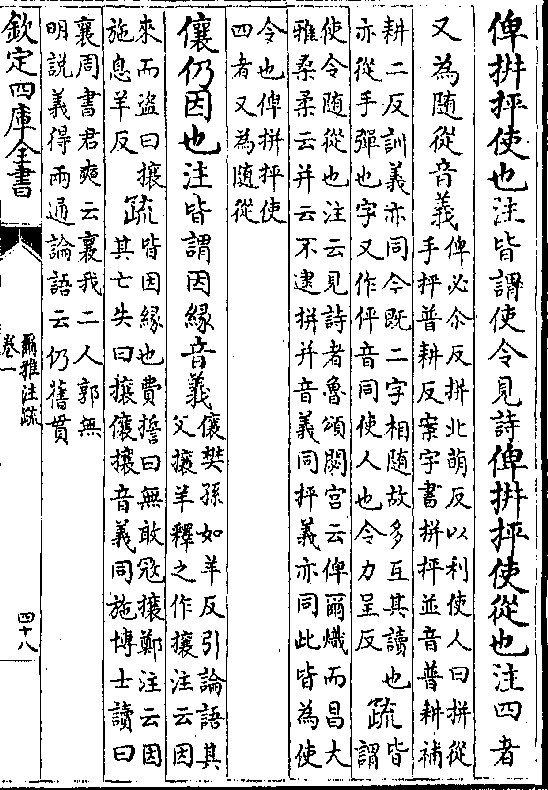 俾拼抨使也注皆謂使令見詩俾拼抨使從也注四者
又為隨從音義俾必尒反拼北萌反以利使人曰拼從
手抨普耕反案字書拼抨並音普耕補
耕二反訓義亦同今既二字相隨故多互其讀也疏皆
亦從手彈也字又作伻音同使人也令力呈反謂
使令隨從也注云見詩者魯頌閟宮云俾爾熾而昌大
雅桑柔云并云不逮拼并音義同抨義亦同此皆為使
令也俾拼抨使
四者又為隨從
儴仍因也注皆謂因緣音義儴樊孫如羊反引論語其
父攘羊釋之作攘注云因
來而盜曰攘疏皆因緣也費誓曰無敢冦攘鄭注云因
施息羊反其亡失曰攘儴攘音義同施博士讀曰
襄周書君奭云襄我二人郭無
明說義得兩通論語云仍舊貫
欽定四庫全書
爾雅注疏
卷一
四十八